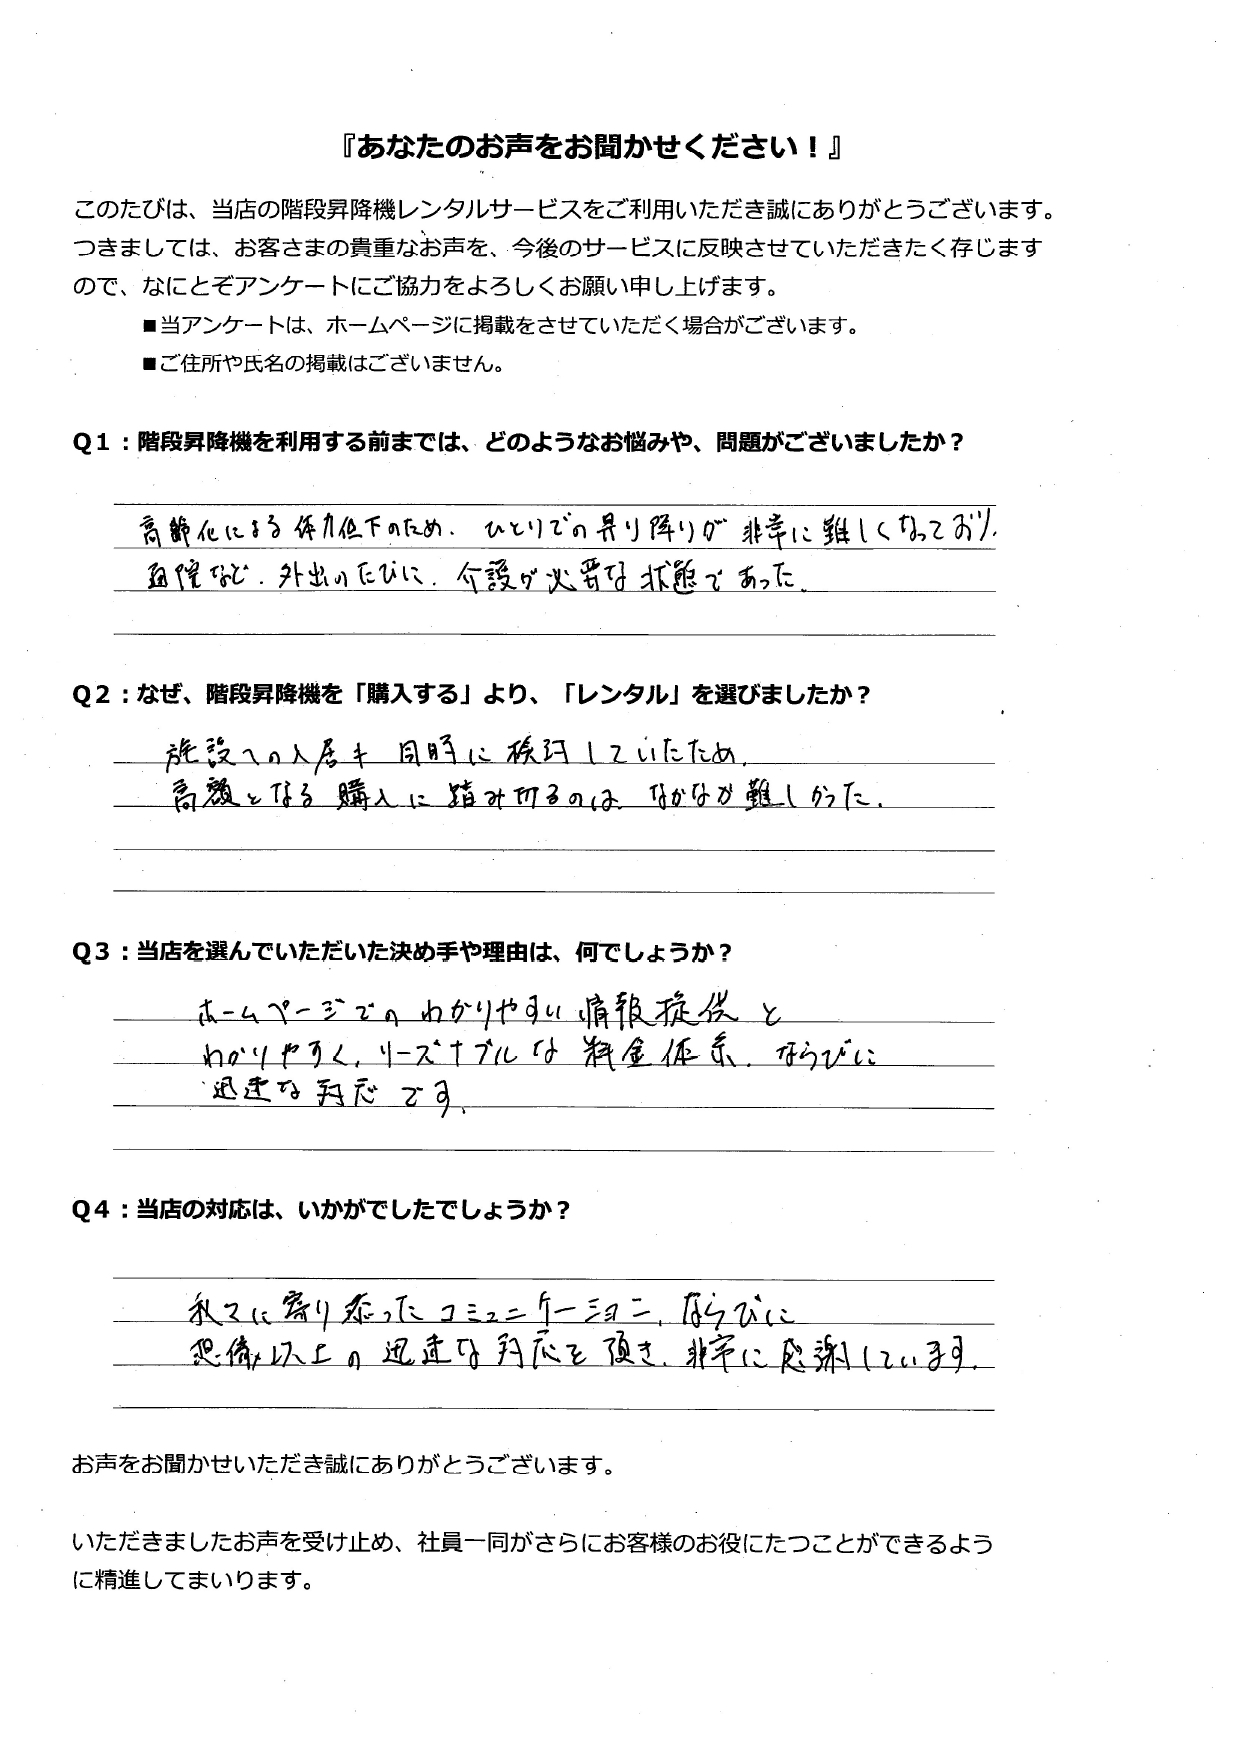 『あなたのお声をお聞かせください！』
このたびは、当店の階段昇降機レンタルサービスをご利用いただき誠にありがとうございます。
つきましては、お客さまの貴重なお声を、今後のサービスに反映させていただきたく存じます
ので、なにとぞアンケートにご協力をよろしくお願い申し上げます。
■当アンケートは、ホームページに掲載をさせていただく場合がございます。
■ご住所や氏名の掲載はございません。
Q1：階段昇降機を利用する前までは、どのようなお悩みや、問題がございましたか？
高齢化による体力低下のため、ひとりでの昇り降りが非常に難しくなっており、
通院など、外出のたびに、介護が必要な状態であった。
Q2：なぜ、階段昇降機を「購入する」より、「レンタル」を選びましたか？
施設への入居も同時に検討していたため、
高額となる購入に踏み切るのは、なかなか難しかった。
Q3：当店を選んでいただいた決め手や理由は、何でしょうか？
ホームページでのわかりやすい情報提供と
わかりやすく、リーズナブルな料金体系、ならびに
迅速な対応です。
Q4：当店の対応は、いかがでしたでしょうか？
私々に寄り添ったコミュニケーション、ならびに
想像以上の迅速な対応を頂き、非常に感謝しています。
お声をお聞かせいただき誠にありがとうございます。
いただきましたお声を受け止め、社員一同がさらにお客様のお役にたつことができるよう
に精進してまいります。